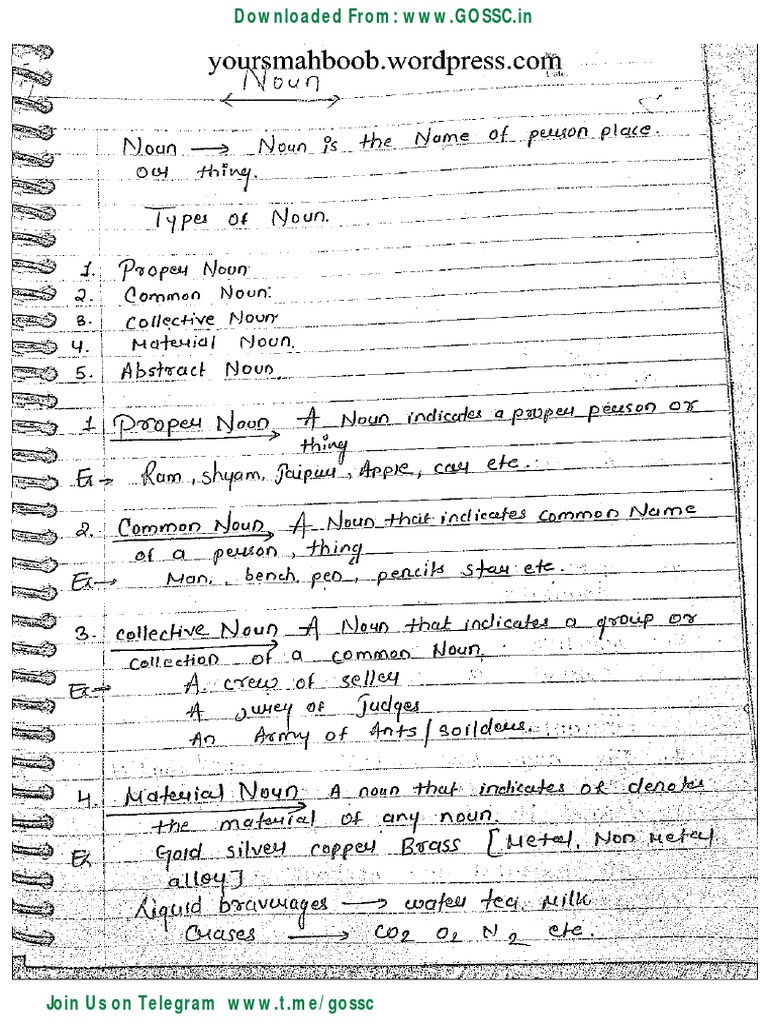 Downloaded From: www.GOSSC.in
yoursmahboob.wordpress.com
Noun
Noun → Noun is the Name of person place.
or thing.
Types of Noun.
1. Proper Noun
2. Common Noun.
3. Collective Noun
4. Material Noun.
5. Abstract Noun.
1 Proper Noun A Noun indicates a proper person or
thing
Ex → Ram, Shyam, Jaipur, Apple, car etc.
2. Common Noun A Noun that indicates common Name
of a person, thing
Ex → Man, bench, pen, pencils star etc.
3. Collective Noun A Noun that indicates a group or
collection of a common Noun.
Ex → A crew of seller
A jurey of Judges
An Army of Ants/soilders.
4. Material Noun A noun that indicates or denotes
the material of any noun.
Ex Gold silver copper Brass [Metal, Non Metal
alloy]
Liquid braverages → water tea, Milk
Grases → CO2 O2 N2 etc.
Join Us on Telegram www.t.me/gossc